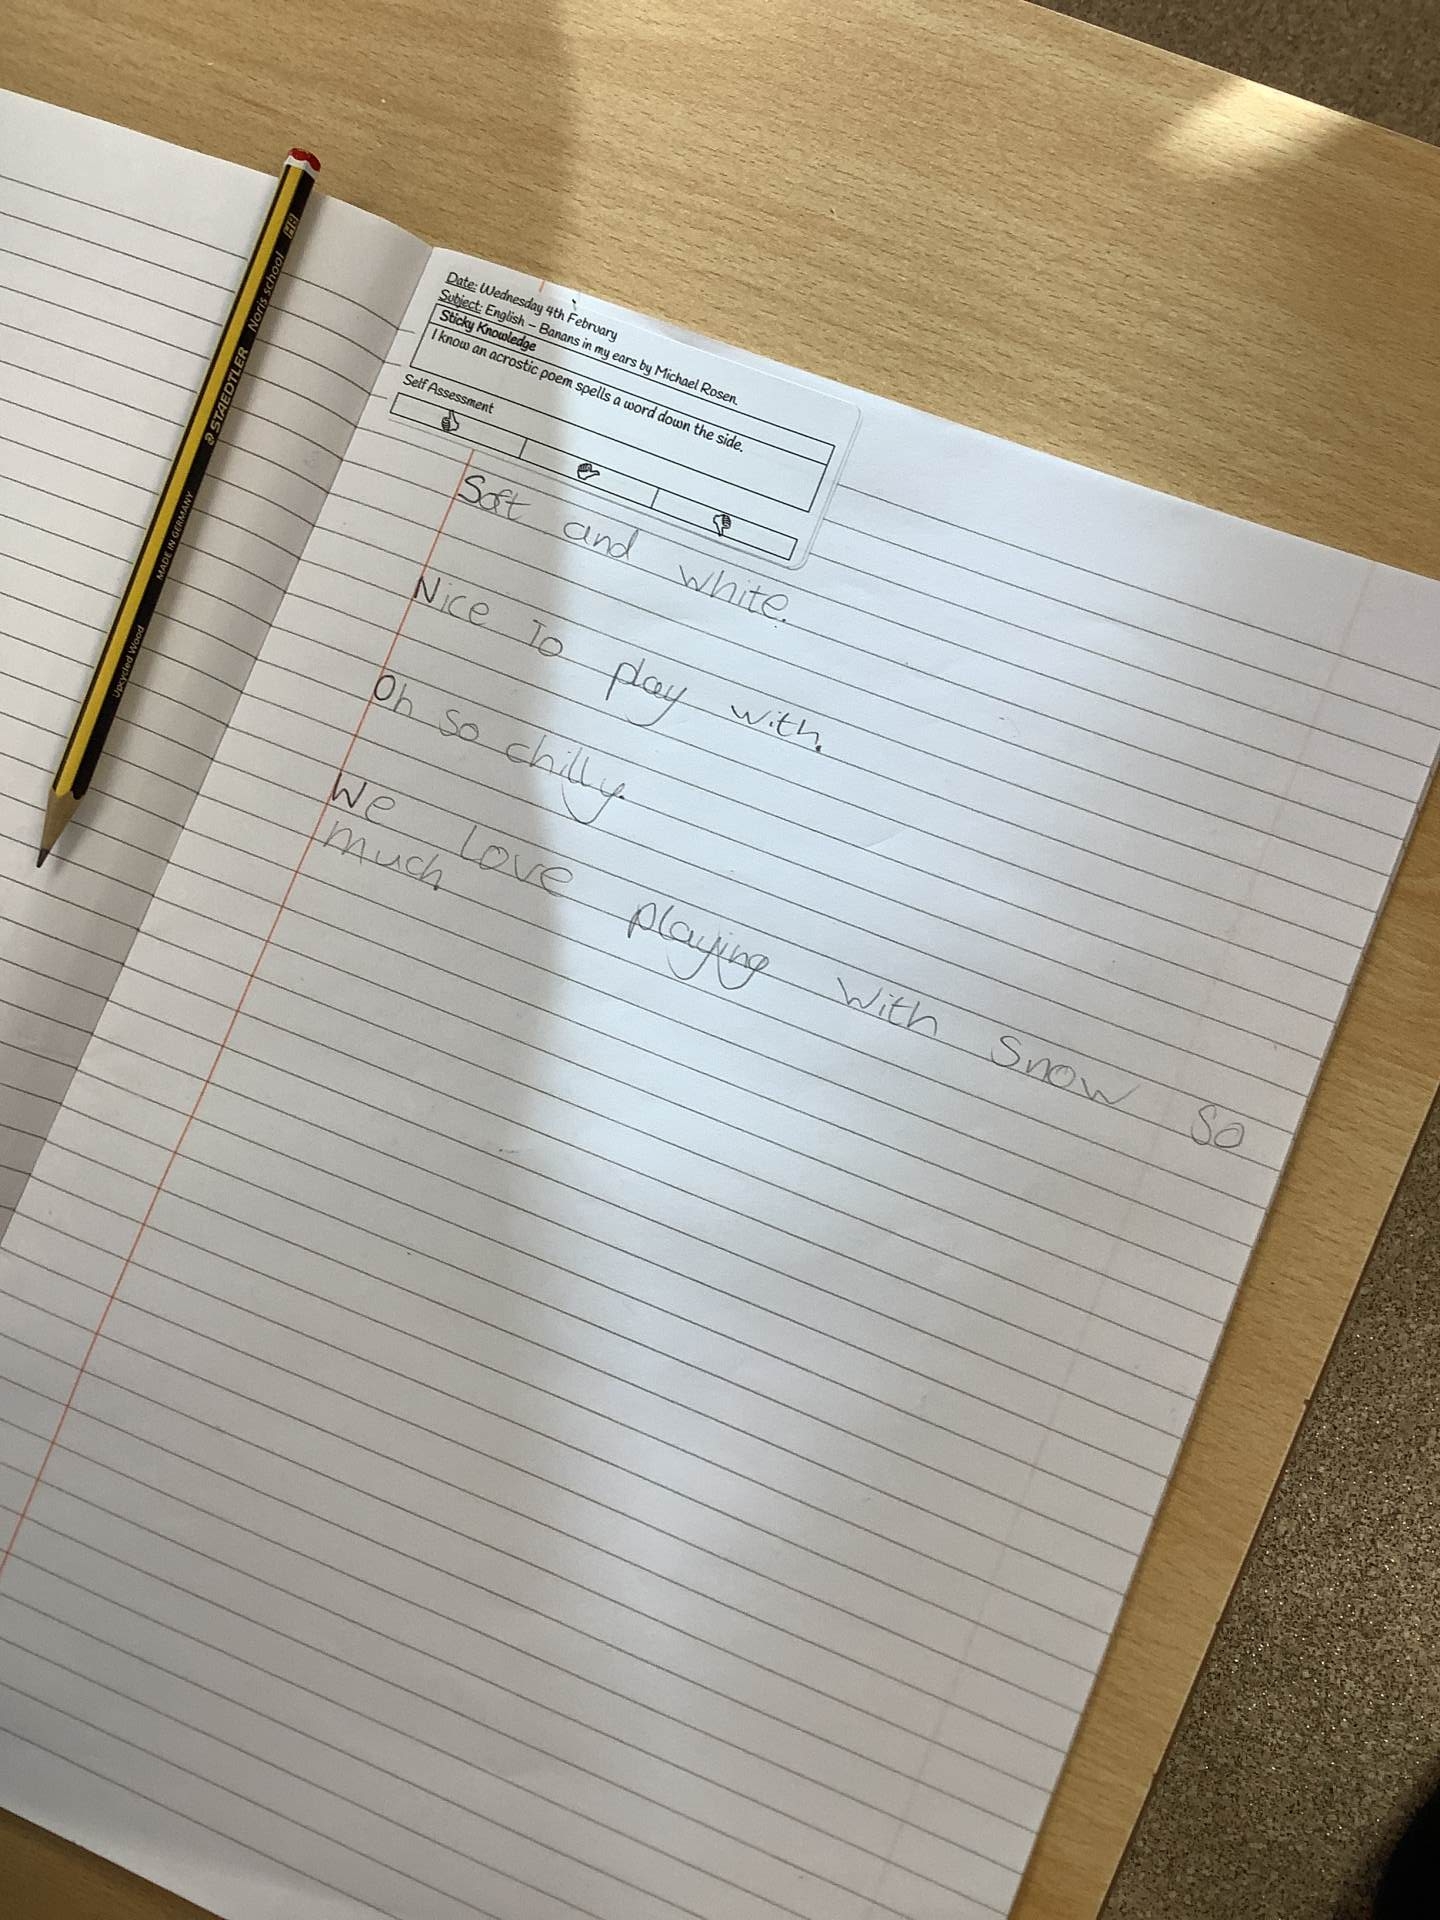 Date: Wednesday 4th February
Subject: English – Banans in my ears by Michael Rosen.
Sticky Knowledge
I know an acrostic poem spells a word down the side.
Self Assessment
Soft and white.
Nice To play with.
Oh so chilly.
We Love playing with snow so
much.
STAEDTLER Noris school HB
MADE IN GERMANY
Upcycled Wood